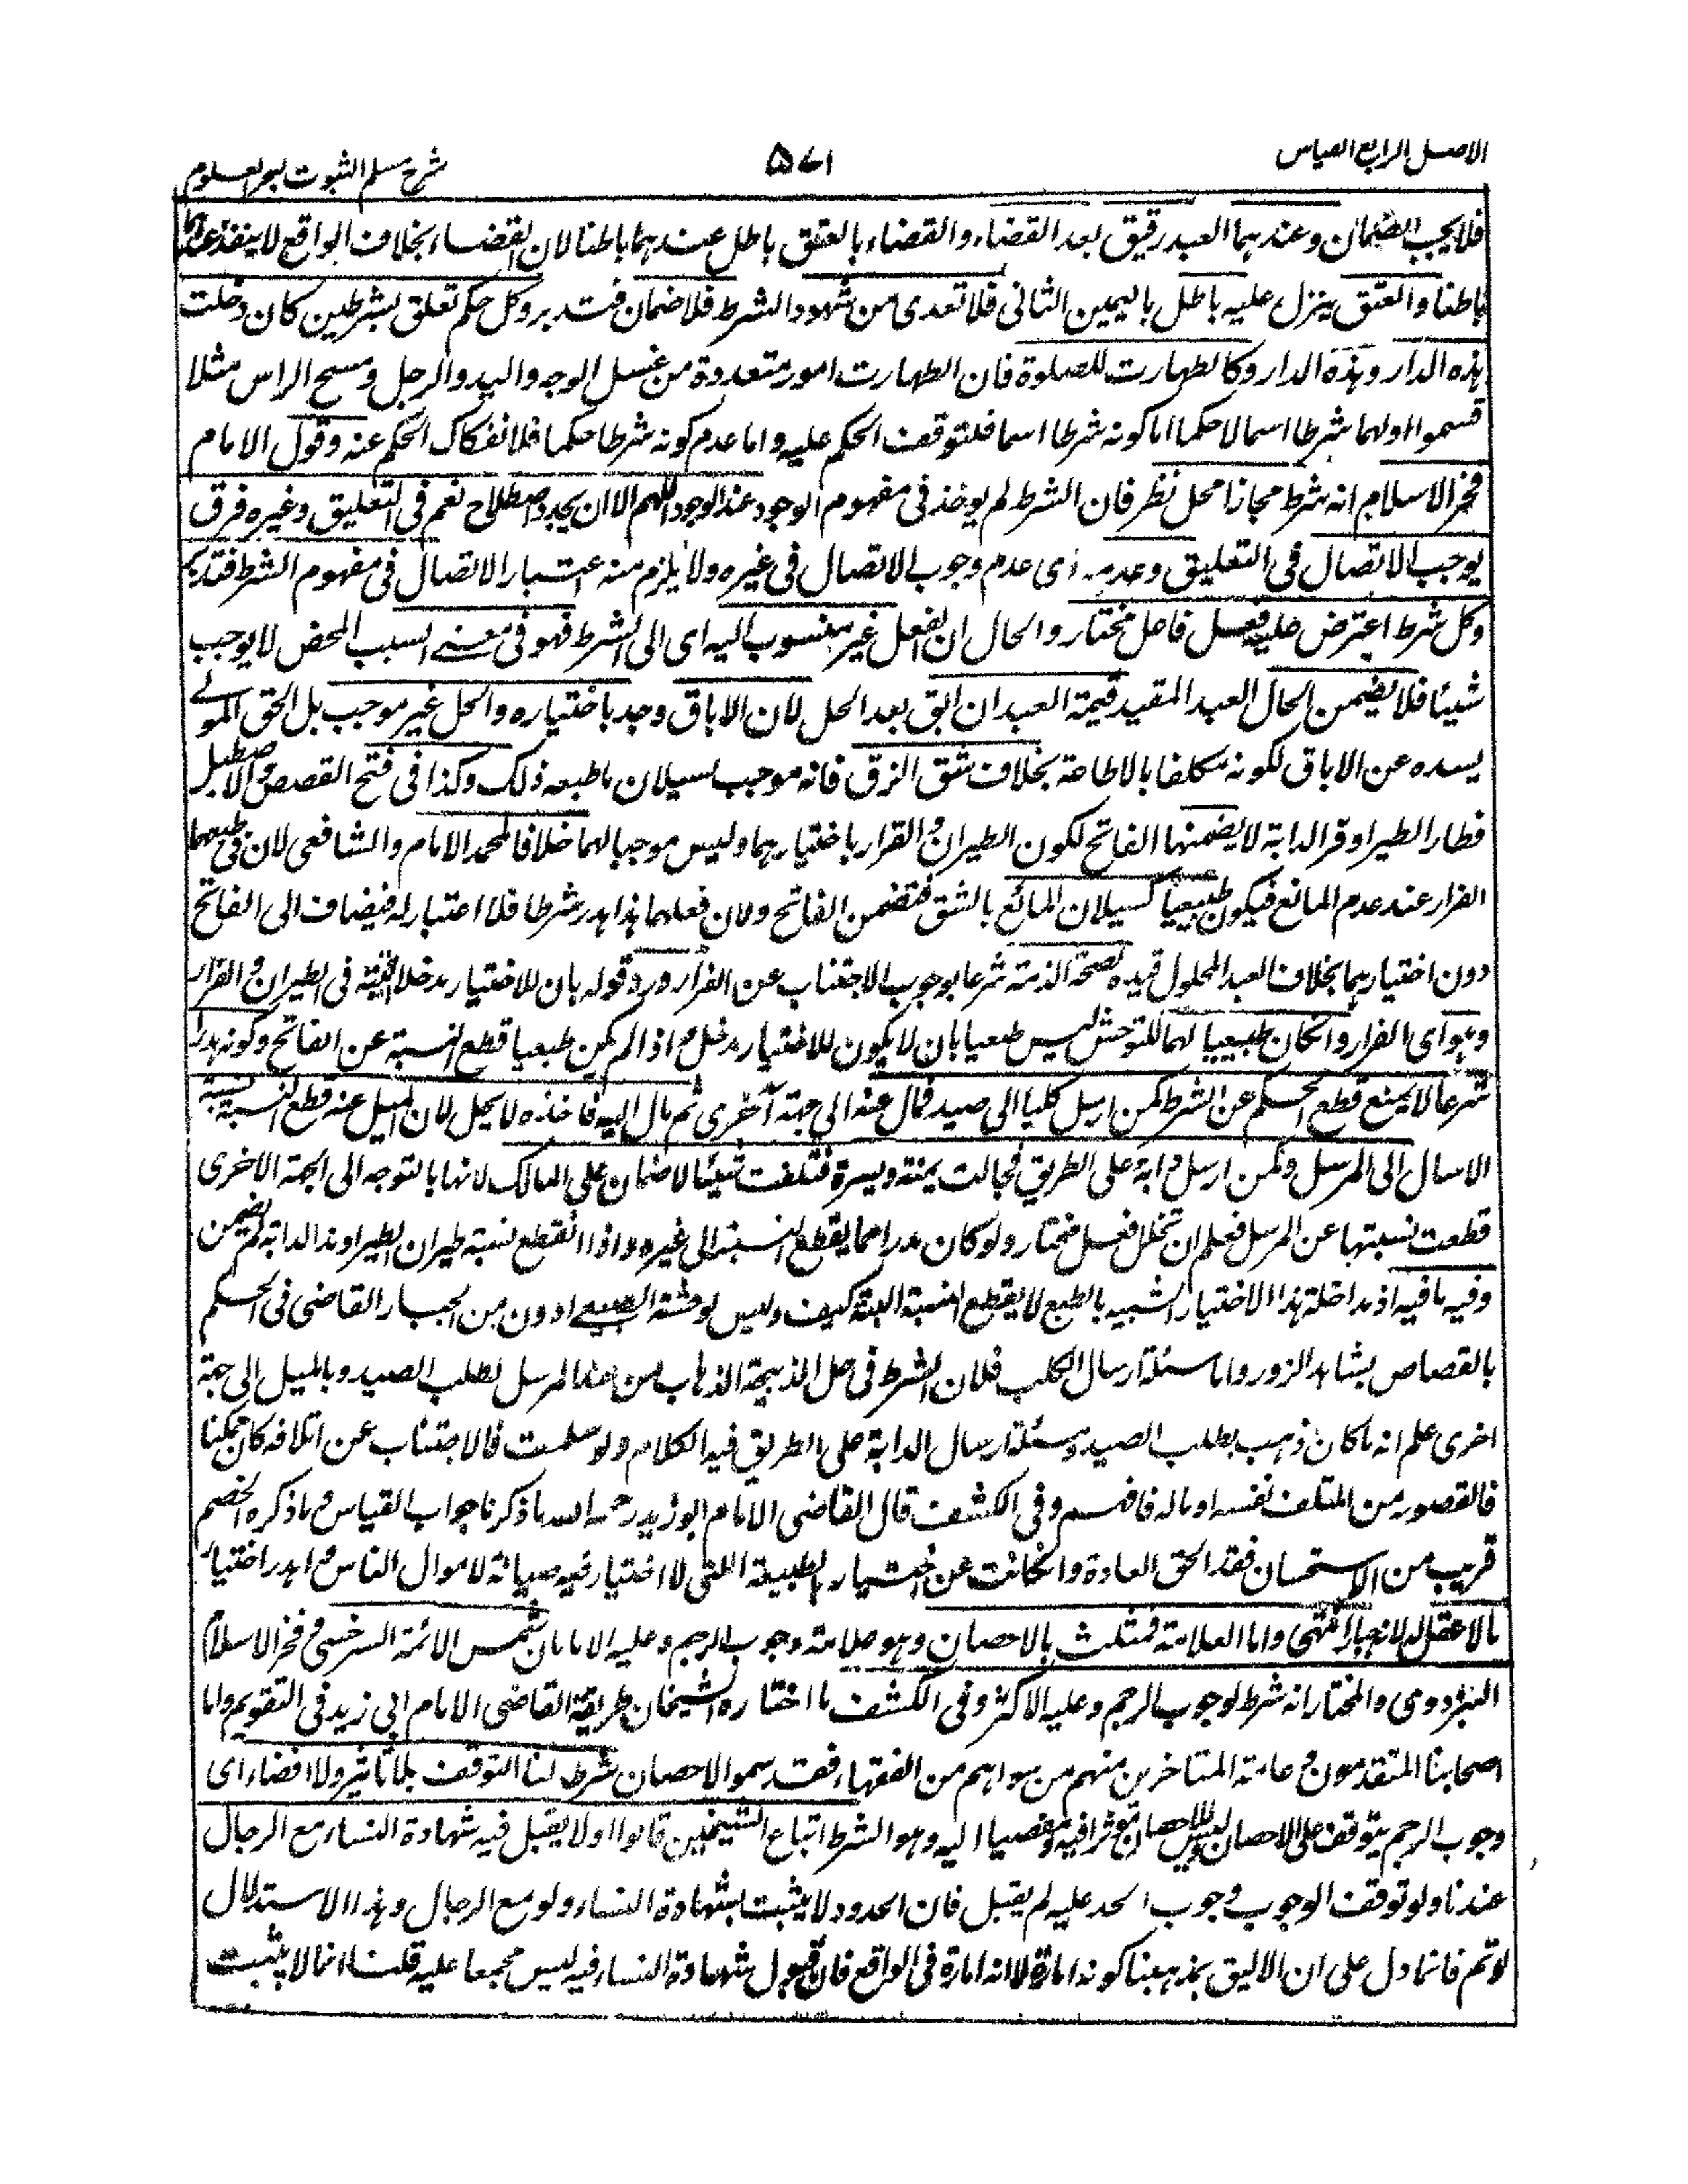 الاصل الرابع القياس
٥٧١
شرح مسلم الثبوت لبحر العلوم
فلا يجب الضمان وعندهما العبد رقيق بعد القضاء والقضاء بالعتق باطل عندهما باطنا لان القضاء بخلاف الواقع لا ينفذ عندهما
باطنا والعتق ينزل عليه باطل باليمين الثانى فلا تعدى من شهود الشرط فلا ضمان فتدبر وكل حكم تعلق بشرطين كان دخلت
هذه الدار وهذه الدار وكالطهارت للصلوة فان الطهارت امور متعددة من غسل الوجه واليد والرجل ومسح الراس مثلا
قسموا اولهما شرطا اسما لا حكما اما كونه شرطا اسما فلتوقف الحكم عليه واما عدم كونه شرطا حكما فلانفكاك الحكم عنه وقول الامام
فخر الاسلام انه شرط مجازا محل نظر فان الشرط لم يوخذ فى مفهوم الوجود عند الوجود اللهم الا ان يجدد اصطلاح نعم فى التعليق وغيره فرق
يوجب الاتصال فى التعليق وعدمه اى عدم وجوب الاتصال فى غيره ولا يلزم منه اعتبار الاتصال فى مفهوم الشرط فتدبر
وكل شرط اعترض عليه فعل فاعل مختار والحال ان الفعل غير منسوب اليه اى الى الشرط فهو فى معنى السبب المحض لا يوجب
شيئا فلا يضمن الحال العبد المقيد قيمة العبد ان ابق بعد الحل لان الاباق وجد باختياره والحل غير موجب بل الحق المولى
يسده عن الاباق لكونه مكلفا بالاطاعة بخلاف شق الزق فانه موجب لسيلان ما طبعه ذلك وكذا فى فتح القفص والاصطبل
فطار الطير او فر الدابة لا يضمنها الفاتح لكون الطيران والفرار باختيارهما وليس موجبا لهما خلافا لمحمد الامام والشافعى لان فى طبعهما
الفرار عند عدم المانع فيكون طبيعيا كسيلان المائع بالشق فتضمن الفاتح ولان فعلهما هذا هدر شرطا فلا اعتبار له فيضاف الى الفاتح
دون اختيارهما بخلاف العبد المحلول قيده لصحة الذمة شرعا بوجوب الاجتناب عن الفرار ورد قوله بان للاختيار مدخلا فيه فى الطيران والفرار
وهو اى الفرار وان كان طبيعيا لهما للتوحش ليس طبعيا بان لا يكون للاختيار مدخل واذا لم يكن طبعيا قطع النسبة عن الفاتح وكونه هدرا
شرعا لا يمنع قطع الحكم عن الشرط كمن ارسل كلبا الى صيد فمال عنه الى جهة آخرى ثم مال اليه فاخذه لا يحل لان الميل عنه قطع النسبة نسبة
الاسال الى المرسل وكمن ارسل دابة على الطريق فجالت يمنة ويسرة فتلفت شيئا لا ضمان على المالك لانها بالتوجه الى الجهة الاخرى
قطعت نسبتها عن المرسل فعلم ان تخلل فعل مختار ولو كان هدرا مما يقطع النسبة الى غيره واذا انقطع نسبة طيران الطير او ند الدابة لم يضمن
وفيه ما فيه اذ مداخلة هذا الاختيار الشبيه بالطبع لا يقطع النسبة البتة كيف وليس لوحشة الطبيعى ادون من اجبار القاضى فى الحكم
بالقصاص بشاهد الزور واما مسئلة ارسال الكلب فلان الشرط فى حل الذبيحة الذهاب من عند المرسل لطلب الصيد وبالميل الى جهة
اخرى علم انه ما كان ذهب بطلب الصيد ومسئلة ارسال الدابة على الطريق فيه الكلام ولو سلمت فالاجتناب عن اتلافه كان ممكنا
فالقصور من المتلف نفسه او ماله فافهم وفى الكشف قال القاضى الامام ابو زيد رحمه الله ما ذكرنا جواب القياس وما ذكره الخصم
قريب من الاستحسان فقد الحق العادة وان كانت عن اختيار بالطبيعة اللتى لا اختيار فيه صيانة لاموال الناس واهدر اختيار
ما لا عقل له انتهى واما العلامة فمثلت بالاحصان وهو علامة وجوب الرجم وعليه الامامان شمس الائمة السرخسى وفخر الاسلام
البزدوى والمختار انه شرط لوجوب الرجم وعليه الاكثر وفى الكشف ما اختاره الشيخان طريقة القاضى الامام ابى زيد فى التقويم واما
اصحابنا المتقدمون وعامة المتاخرين منهم من سواهم من الفقهاء فقد سموا الاحصان شرط لنا التوقف بلا تاثير ولا افضاء اى
وجوب الرجم يتوقف على الاحصان وليس الاحصان موثرا فيه ومفضيا اليه وهو الشرط اتباع الشيخين قالوا اولا يقبل فيه شهادة النساء مع الرجال
عندنا ولو توقف الوجوب وجوب الحد عليه لم يقبل فان الحدود لا يثبت بشهادة النساء ولو مع الرجال وهذا الاستدلال
لو تم فانما دل على ان الاليق بمذهبنا كونه امارة لا انه امارة فى الواقع فان قبول شهادة النساء فيه ليس مجمعا عليه قلنا انما لا يثبت